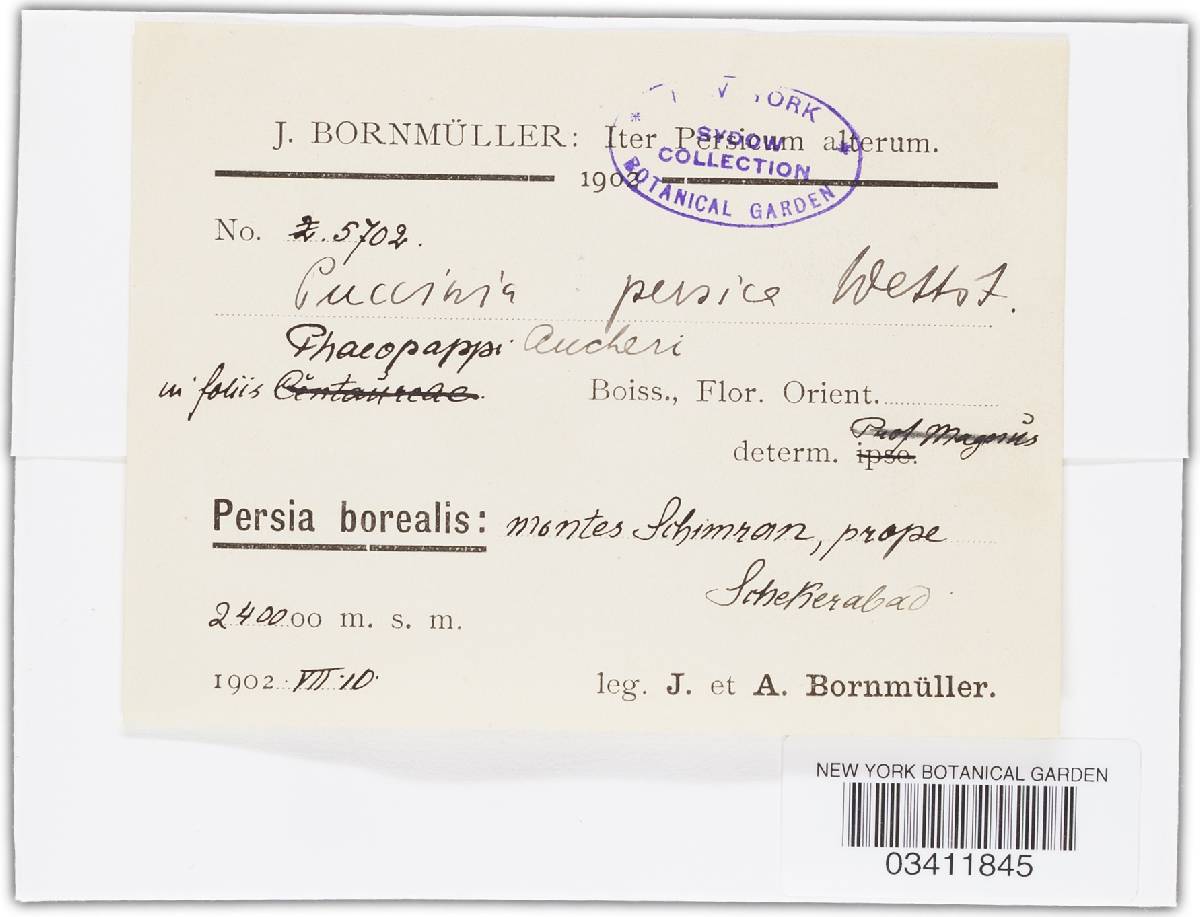 YORK
SYDOW
COLLECTION
BOTANICAL GARDEN
J. BORNMÜLLER: Iter Persicum alterum.
1902
No. Z. 5702.
Puccinia persica Wettst.
Phaeopappi Aucheri
in foliis Centaureae Boiss., Flor. Orient.
Prof Magnus
determ. ipse.
Persia borealis: montes Schimran, prope
Schekerabad
240000 m. s. m.
1902 VII.10. leg. J. et A. Bornmüller.
NEW YORK BOTANICAL GARDEN
03411845